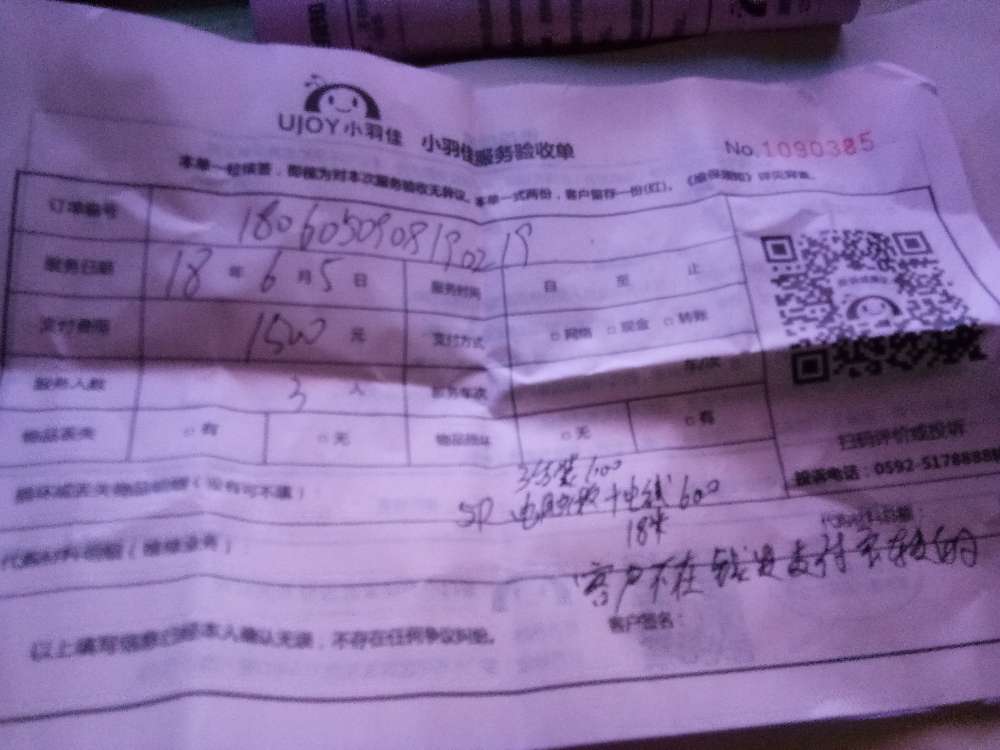 UJOY小羽佳 小羽佳服务验收单
No.1090385
本单一经签署，即视为对本次服务验收无异议。本单一式两份，客户留存一份(红)。
订单编号 18060509081902 19
服务日期 18 年 6 月 5 日 服务时间 自 至 止
支付费用 1500 元 支付方式 □网络 □现金 □转账
服务人数 3 人 服务车次 车/次
物品丢失 □有 □无 物品损坏 □无 □有
扫码评价或投诉
投诉电话：0592-5178888
损坏或丢失物品明细（没有可不填）
600
5P 电 + 电线 600
18米
代购材料明细（维修业务）：
客户不在 钱是支付宝转的
以上填写信息已经本人确认无误，不存在任何争议纠纷。
客户签名：